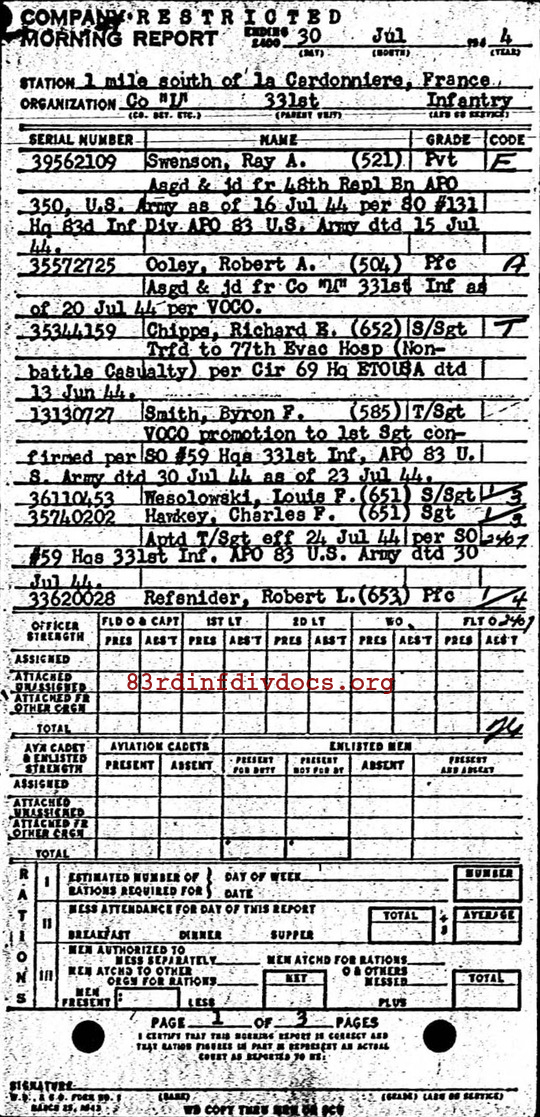 COMPANY RESTRICTED
MORNING REPORT ENDING 2400 30 Jul 194 4
(DAY) (MONTH) (YEAR)
STATION 1 mile south of la Cardonniere, France
ORGANIZATION Co "L" 331st Infantry
(CO. DET. ETC.) (PARENT UNIT) (ARM OR SERVICE)
SERIAL NUMBER NAME GRADE CODE
39562109 Swenson, Ray A. (521) Pvt E
Asgd & jd fr 48th Repl Bn APO
350, U.S. Army as of 16 Jul 44 per SO #131
Hq 83d Inf Div APO 83 U.S. Army dtd 15 Jul
44.
35572725 Ooley, Robert A. (504) Pfc A
Asgd & jd fr Co "M" 331st Inf as
of 20 Jul 44 per VOCO.
35344159 Chipps, Richard E. (652) S/Sgt T
Trfd to 77th Evac Hosp (Non-
battle Casualty) per Cir 69 Hq ETOUSA dtd
13 Jun 44.
13130727 Smith, Byron F. (585) T/Sgt
VOCO promotion to 1st Sgt con-
firmed per SO #59 Hqs 331st Inf, APO 83 U.
S. Army dtd 30 Jul 44 as of 23 Jul 44.
36110453 Wesolowski, Louis F. (651) S/Sgt 1/3
35740202 Hawkey, Charles F. (651) Sgt 1/3
Aptd T/Sgt eff 24 Jul 44 per SO 2467
#59 Hqs 331st Inf. APO 83 U.S. Army dtd 30
Jul 44.
33620028 Refsnider, Robert L. (653) Pfc 1/4
OFFICER STRENGTH FLD O & CAPT 1ST LT 2D LT WO FLT O 2467
PRES ABS'T PRES ABS'T PRES ABS'T PRES ABS'T PRES ABS'T
ASSIGNED
ATTACHED UNASSIGNED
83rdinfdivdocs.org
ATTACHED FR OTHER ORGN
TOTAL
AVN CADET & ENLISTED STRENGTH AVIATION CADETS ENLISTED MEN
PRESENT ABSENT PRESENT FOR DUTY PRESENT NOT FOR DY ABSENT PRESENT AND ABSENT
ASSIGNED
ATTACHED UNASSIGNED
ATTACHED FR OTHER ORGN
TOTAL
RATIONS
I ESTIMATED NUMBER OF RATIONS REQUIRED FOR } DAY OF WEEK NUMBER
DATE
II MESS ATTENDANCE FOR DAY OF THIS REPORT TOTAL ÷ 3 AVERAGE
BREAKFAST DINNER SUPPER
III MEN AUTHORIZED TO MESS SEPARATELY MEN ATCHD FOR RATIONS
MEN ATCHD TO OTHER ORGN FOR RATIONS NET O & OTHERS MESSED TOTAL
MEN PRESENT LESS PLUS
PAGE 1 OF 3 PAGES
I CERTIFY THAT THIS MORNING REPORT IS CORRECT AND
THAT RATION FIGURES IN PART III REPRESENT AN ACTUAL
COUNT AS REPORTED TO ME:
SIGNATURE
W.D., A.G.O. FORM NO. 1 (NAME) (GRADE) (ARM OR SERVICE)
MARCH 25, 1943
WD COPY THRU MRU OR SCU